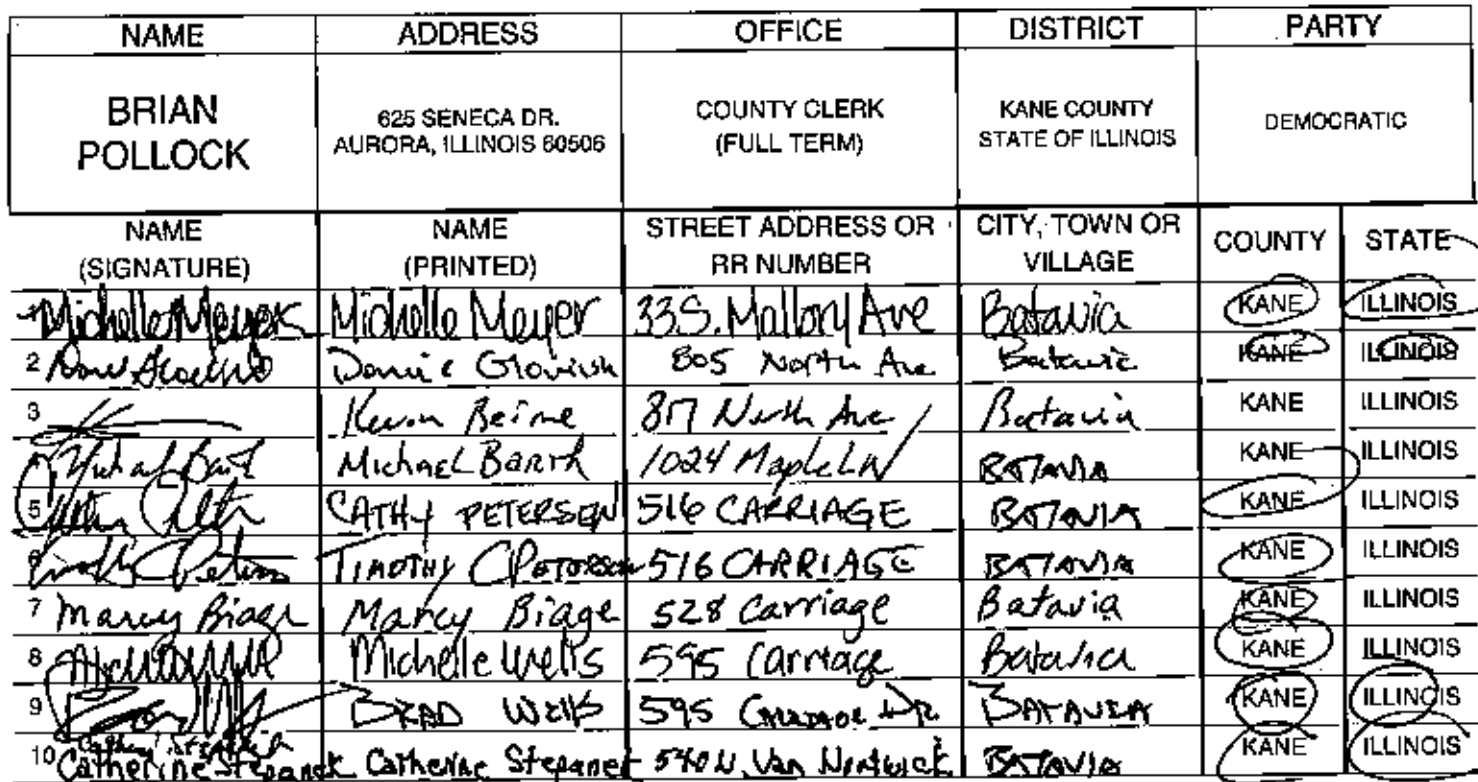 NAME ADDRESS OFFICE DISTRICT PARTY
BRIAN POLLOCK 625 SENECA DR. AURORA, ILLINOIS 60506 COUNTY CLERK (FULL TERM) KANE COUNTY STATE OF ILLINOIS DEMOCRATIC
NAME (SIGNATURE) NAME (PRINTED) STREET ADDRESS OR RR NUMBER CITY, TOWN OR VILLAGE COUNTY STATE
Michelle Meyer Michelle Meyer 33 S. Mallory Ave Batavia KANE ILLINOIS
2 805 North Ave Batavia KANE ILLINOIS
3 Kevin Beirne 817 North Ave Batavia KANE ILLINOIS
Michael Barth 1024 Maple LN BATAVIA KANE ILLINOIS
5 CATHY PETERSEN 516 CARRIAGE BATAVIA KANE ILLINOIS
6 TIMOTHY C PETERSEN 516 CARRIAGE BATAVIA KANE ILLINOIS
7 Marcy Biage Marcy Biage 528 Carriage Batavia KANE ILLINOIS
8 Michelle Wells 595 Carriage Batavia KANE ILLINOIS
9 BRAD Wells 595 Dr. BATAVIA KANE ILLINOIS
10 Catherine Stepanek Catherine Stepanek 540 N. Van Nortwick BATAVIA KANE ILLINOIS